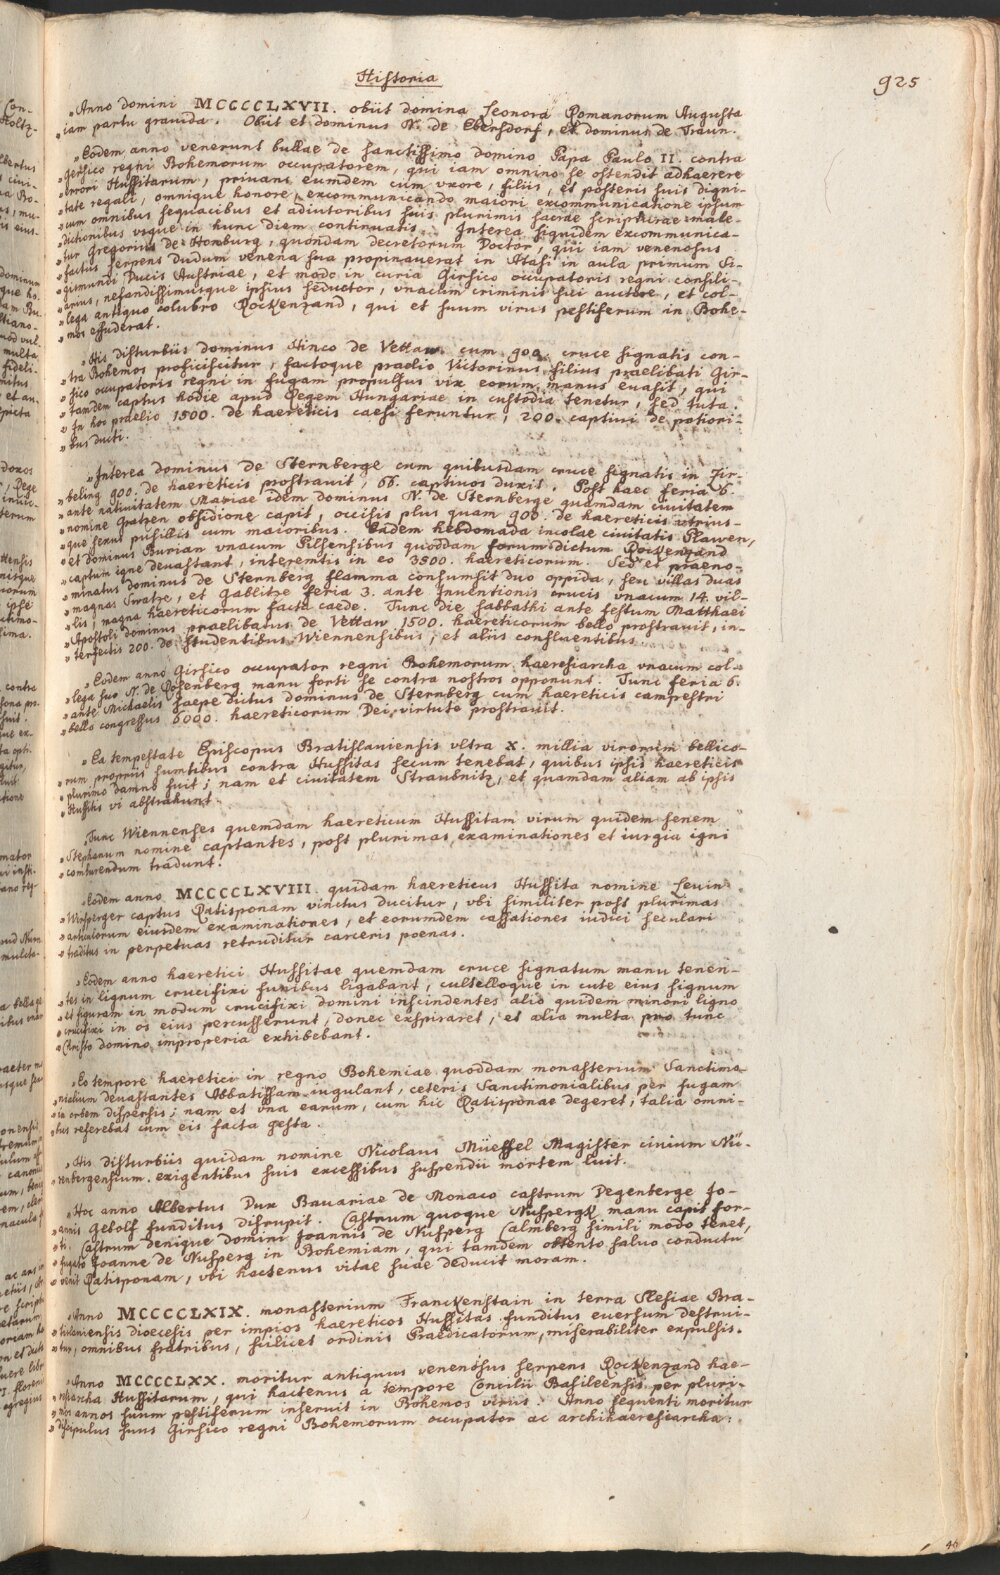 Historia
925
„Anno domini MCCCCLXVII. obiit domina Leonora Romanorum Augusta
„iam partu gravida. Obiit et dominus N. de Ebersdorf, et dominus de Traun.
„Eodem anno venerunt bullae de sanctissimo domino Papa Paulo II. contra
„Gersico regni Bohemorum occupatorem, qui iam omnino se ostendit adhaerere
„errori Hussitarum, privans eumdem cum uxore, filiis, et posteris suis digni-
„tate regali, omnique honore, excommunicando maiori excommunicatione ipsum
„cum omnibus sequacibus et adiutoribus suis plurimis sacrae scripturae male-
„dictionibus vsque in hunc diem continuatis. Interea siquidem excommunica-
„tur Gregorius de Homburg, quondam decretorum Doctor, qui iam venenosus
„factus serpens dudum venena sua propinauerat in Atasi in aula primum Si-
„gismundi Ducis Austriae, et modo in curia Girsico occupatoris regni consili-
„arius, nefandissimusque ipsius seductor, vnacum criminis sui auctore, et col-
„lega antiquo colubro Rockenzand, qui et suum virus pestiferum in Bohe-
„mos effuderat.
„His disturbiis dominus Hinco de Vettaw cum 900. cruce signatis con-
„tra Bohemos proficiscitur, factoque praelio Victorinus filius praelibati Gir-
„sico occupatoris regni in fugam propulsus vix eorum manus euasit, qui
„tamdem captus hodie apud Regem Hungariae in custodia tenetur, sed tuta.
„In hoc praelio 1500. de haereticis caesi feruntur, 200. captiui de potiori-
„bus ducti.
„Interea dominus de Sternberge cum quibusdam cruce signatis in Zir-
„beling 900. de haereticis prostrauit, 66. captiuos duxit. Post haec feria 6.
„ante natiuitatem Mariae idem dominus N. de Sternberge quemdam ciuitatem
„nomine Gratzen obsidione capit, occisis plus quam 900. de haereticis vtrius-
„que sexus pusillis cum maioribus. Eadem hebdomada incolae ciuitatis Plawen,
„et dominus Burian vnacum Pilsensibus quoddam forum dictum Rockenzand
„captum igne deuastant, interemtis in eo 3500. haereticorum. Sed et praeno-
„minatus dominus de Sternberg flamma consumsit duo oppida, seu villas duas
„magnas Swatre, et Gablitze feria 3. ante Inuentionis crucis vnacum 14. vil-
„lis, magna haereticorum facta caede. Tunc die sabbathi ante festum Matthaei
„Apostoli dominus praelibatus de Vettaw 1500. haereticorum bello prostrauit, in-
„terfectis 200. de studentibus Wiennensibus, et aliis confluentibus.
„Eodem anno Girsico occupator regni Bohemorum haeresiarcha vnacum col-
„lega suo N. de Rosenberg manu forti se contra nostros opponunt. Tunc feria 6.
„ante Michaelis saepe dictus dominus de Sternberg cum haereticis campestri
„bello congressus 6000. haereticorum Dei virtute prostrauit.
„Ea tempestate Episcopus Bratislauiensis vltra X. millia virorum bellico-
„rum propriis sumtibus contra Hussitas secum tenebat, quibus ipsis haereticis
„plurimo damno fuit; nam et ciuitatem Straubnitz, et quamdam aliam ab ipsis
„Hussitis vi abstrahunt.
„Tunc Wiennenses quemdam haereticum Hussitam virum quidem senem
„Stephanum nomine captantes, post plurimas examinationes et iurgia igni
„comburendum tradunt.
„Eodem anno MCCCCLXVIII. quidam haereticus Hussita nomine Leuin
„Wosperger captus Ratisponam vinctus ducitur, vbi similiter post plurimas
„articulorum eiusdem examinationes, et eorumdem cassationes iudici seculari
„traditus in perpetuas retruditur carceris poenas.
„Eodem anno haeretici Hussitae quemdam cruce signatum manu tenen-
„tes in lignum crucifixi funibus ligabant, cultelloque in cute eius signum
„et figuram in modum crucifixi domini inscindentes alio quidem minori ligno
„crucifixi in os eius percusserunt, donec exspiraret, et alia multa pro tunc
„Christo domino improperia exhibebant.
„Eo tempore haeretici in regno Bohemiae quoddam monasterium Sanctimo-
„nialium deuastantes Abbatissam iugulant, ceteris Sanctimonialibus per fugam
„in orbem dispersis; nam et vna earum, cum hic Ratisponae degeret, talia omni-
„bus referebat cum eis facta gesta.
„His disturbiis quidam nomine Nicolaus Müeffel Magister ciuium Nü-
„renbergensium, exigentibus suis excessibus suspendii mortem luit.
„Hoc anno Albertus Dux Bauariae de Monaco castrum Degenberge Jo-
„annis Gewolf funditus disrupit. Castrum quoque Nuspergk manu capit for-
„ti. Castrum denique domini Joannis de Nusperg Calmberg simili modo tenet,
„fugato Joanne de Nusperg in Bohemiam, qui tamdem obtento saluo conductu
„venit Ratisponam, vbi hactenus vitae suae deducit moram.
„Anno MCCCCLXIX. monasterium Franckenstain in terra Slesiae Bra-
„tislauiensis dioecesis per impios haereticos Hussitas funditus euersum destrui-
„tur, omnibus fratribus, scilicet ordinis Praedicatorum, miserabiliter expulsis.
„Anno MCCCCLXX. moritur antiquus venenosus serpens Rockenzand hae-
„resiarcha Hussitarum, qui hactenus a tempore Concilii Basileensis per pluri-
„mos annos suum pestiferum inseruit in Bohemos virus. Anno sequenti moritur
„discipulus suus Girsico regni Bohemorum occupator ac archihaeresiarcha.